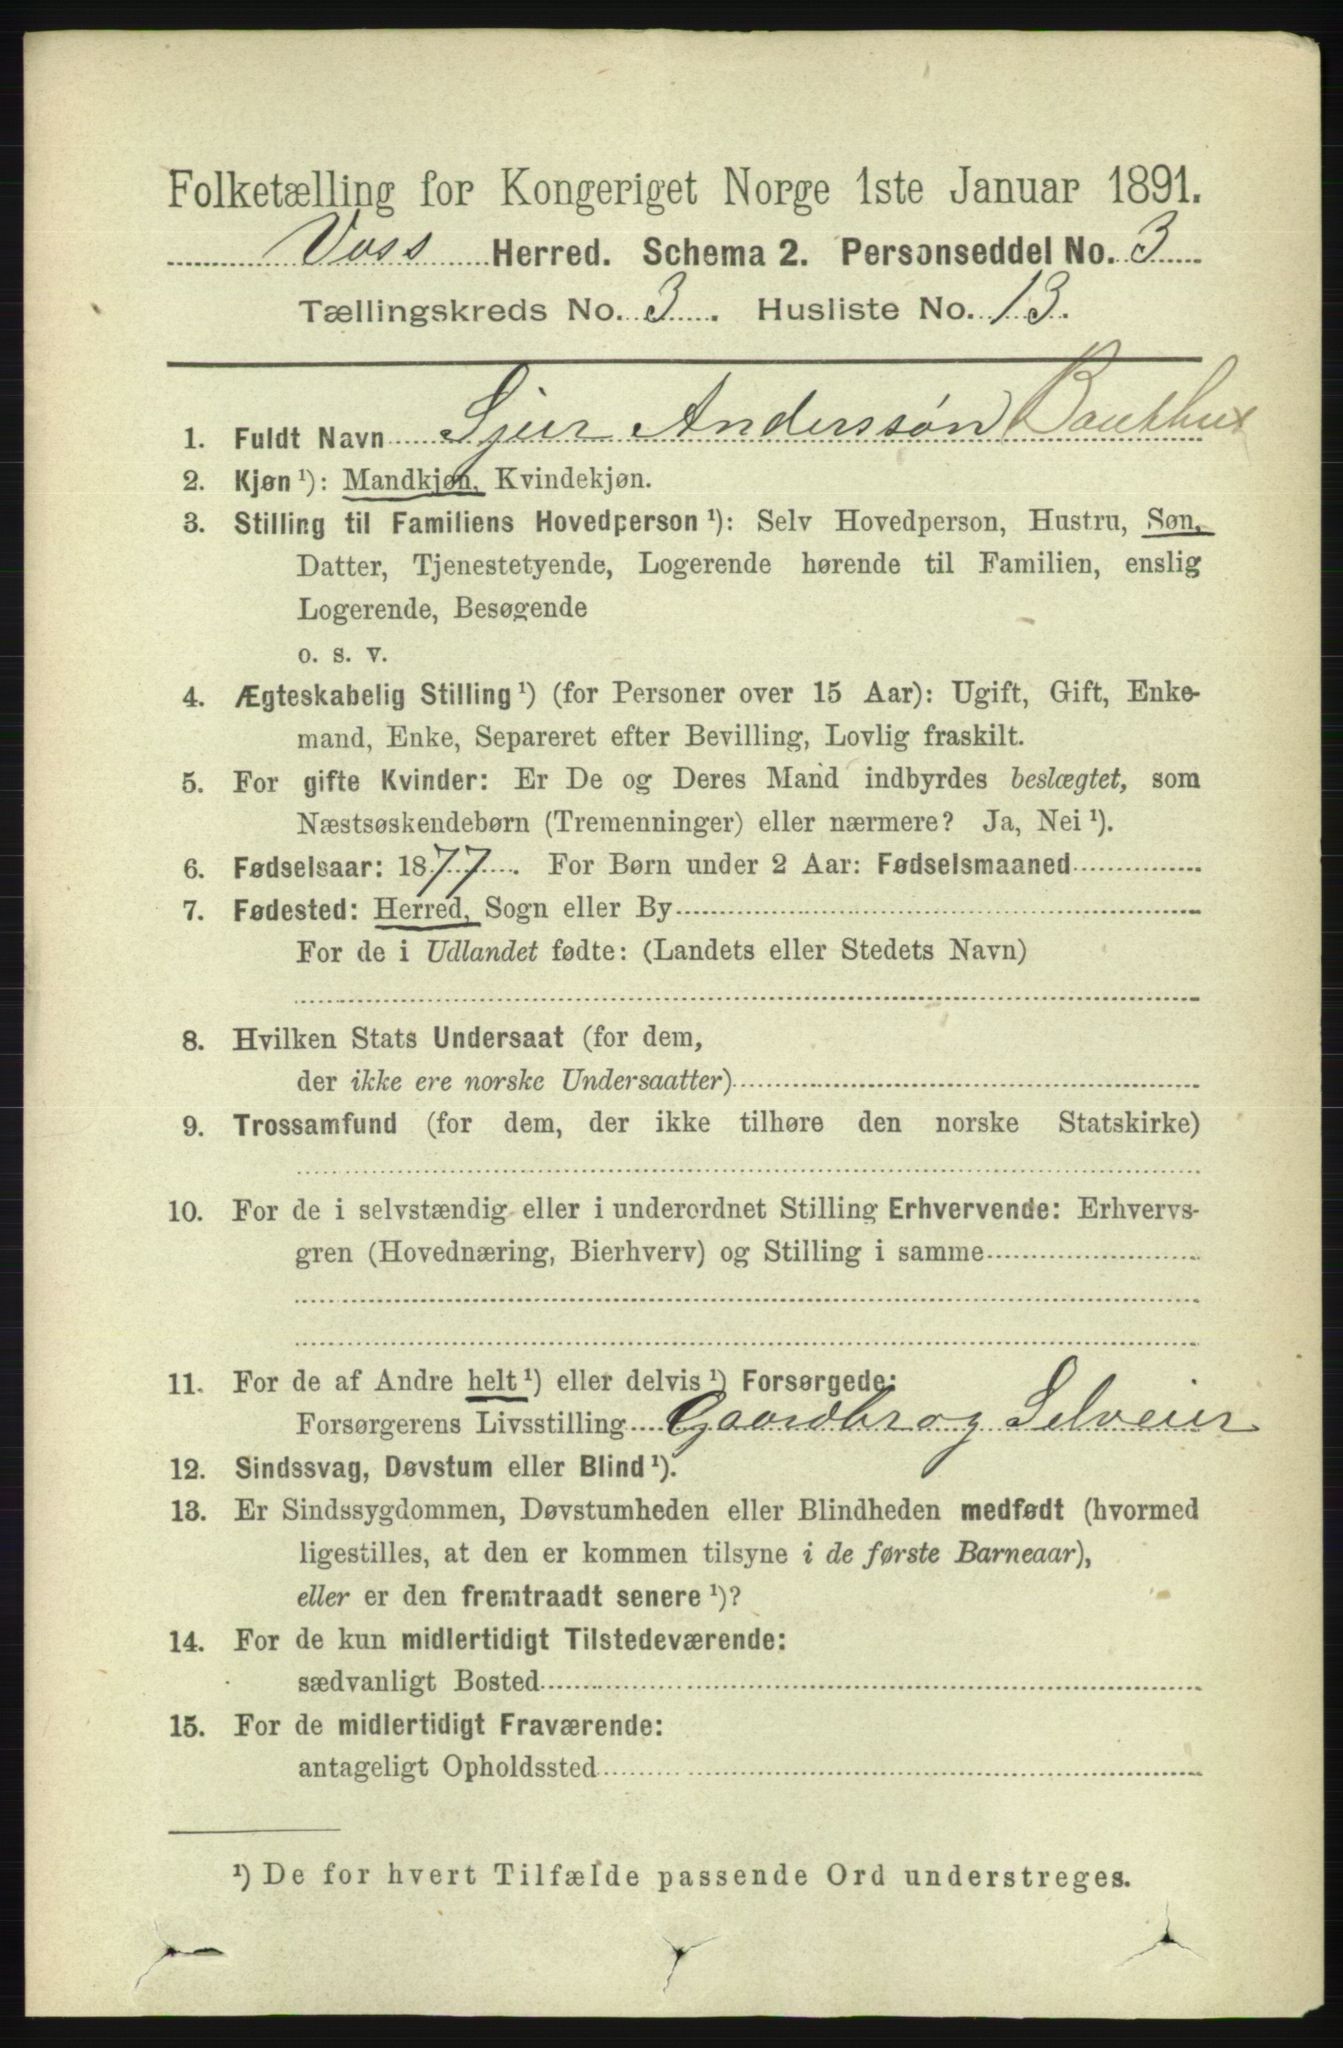 Folketælling for Kongeriget Norge 1ste Januar 1891.
Voss Herred. Schema 2. Personseddel No. 3
Tællingskreds No. 3. Husliste No. 13.
1. Fuldt Navn Sjur Anderssøn
2. Kjøn ¹): Mandkjøn, Kvindekjøn.
3. Stilling til Familiens Hovedperson ¹): Selv Hovedperson, Hustru, Søn,
Datter, Tjenestetyende, Logerende hørende til Familien, enslig
Logerende, Besøgende
o. s. v.
4. Ægteskabelig Stilling ¹) (for Personer over 15 Aar): Ugift, Gift, Enke-
mand, Enke, Separeret efter Bevilling, Lovlig fraskilt.
5. For gifte Kvinder: Er De og Deres Mand indbyrdes beslægtet, som
Næstsøskendebørn (Tremenninger) eller nærmere? Ja, Nei ¹).
6. Fødselsaar: 1877. For Børn under 2 Aar: Fødselsmaaned
7. Fødested: Herred, Sogn eller By
For de i Udlandet fødte: (Landets eller Stedets Navn)
8. Hvilken Stats Undersaat (for dem,
der ikke ere norske Undersaatter)
9. Trossamfund (for dem, der ikke tilhøre den norske Statskirke)
10. For de i selvstændig eller i underordnet Stilling Erhvervende: Erhvervs-
gren (Hovednæring, Bierhverv) og Stilling i samme
11. For de af Andre helt ¹) eller delvis ¹) Forsørgede:
Forsørgerens Livsstilling Gaardbr og Selveier
12. Sindssvag, Døvstum eller Blind ¹).
13. Er Sindssygdommen, Døvstumheden eller Blindheden medfødt (hvormed
ligestilles, at den er kommen tilsyne i de første Barneaar),
eller er den fremtraadt senere ¹)?
14. For de kun midlertidigt Tilstedeværende:
sædvanligt Bosted
15. For de midlertidigt Fraværende:
antageligt Opholdssted
¹) De for hvert Tilfælde passende Ord understreges.